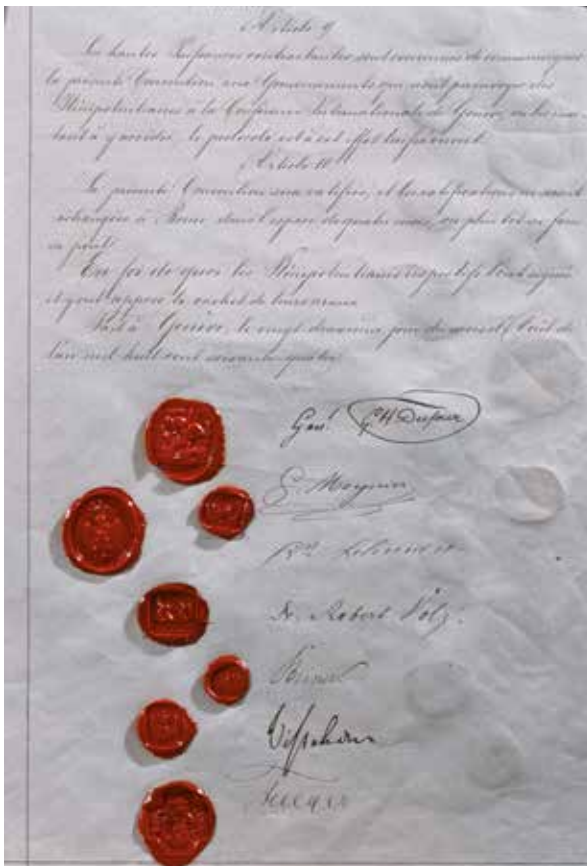 Article 9
Les hautes Puissances contractantes sont convenues de communiquer
la présente Convention aux Gouvernements qui n'ont pu envoyer des
Plénipotentiaires à la Conférence Internationale de Genève, en les invi
tant à y accéder, le protocole est à cet effet laissé ouvert.
Article 10
La présente Convention sera ratifiée, et les ratifications en seront
échangées à Berne dans l'espace de quatre mois, ou plus tôt si faire
se peut.
En foi de quoi les Plénipotentiaires respectifs l'ont signée
et y ont apposé le cachet de leurs armes.
Fait à Genève, le vingt deuxième jour du mois d'Août de
l'an mil huit cent soixante quatre.
Genl. G H Dufour
G. Moynier
Dr. Robert Volz.
Visschers